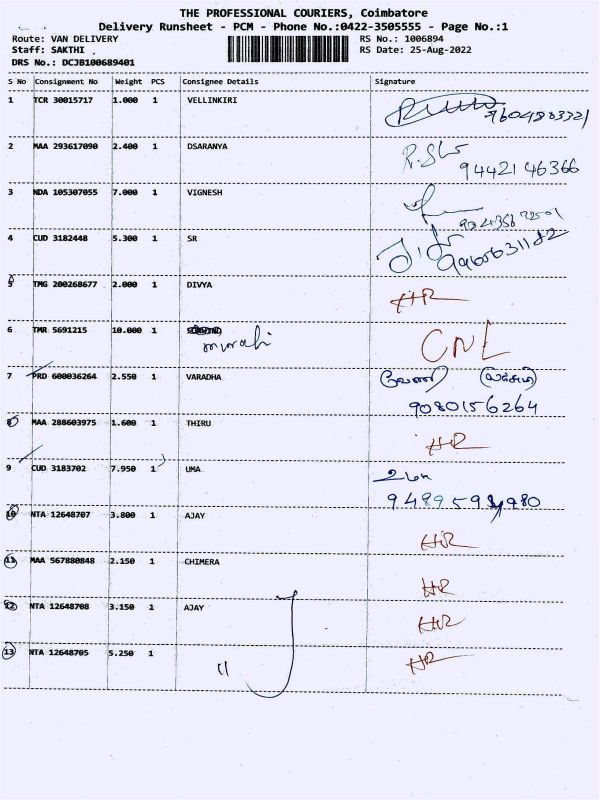 THE PROFESSIONAL COURIERS, Coimbatore
Delivery Runsheet - PCM - Phone No.:0422-3505555 - Page No.:1
Route: VAN DELIVERY RS No.: 1006894
Staff: SAKTHI RS Date: 25-Aug-2022
DRS No.: DCJB100689401
S No Consignment No Weight PCS Consignee Details Signature
1 TCR 30015717 1.000 1 VELLINKIRI
2 MAA 293617090 2.400 1 DSARANYA
9442146366
3 NDA 105307055 7.000 1 VIGNESH
4 CUD 3182448 5.300 1 SR
5 TMG 200268677 2.000 1 DIVYA HR
6 TMR 5691215 10.000 1 CNL
7 PRD 600036264 2.550 1 VARADHA
9080156264
8 MAA 288603975 1.600 1 THIRU HR
9 CUD 3183702 7.950 1 UMA உமா
10 NTA 12648707 3.800 1 AJAY HR
11 MAA 567880848 2.150 1 CHIMERA HR
12 NTA 12648708 3.150 1 AJAY HR
13 NTA 12648705 5.250 1 " HR